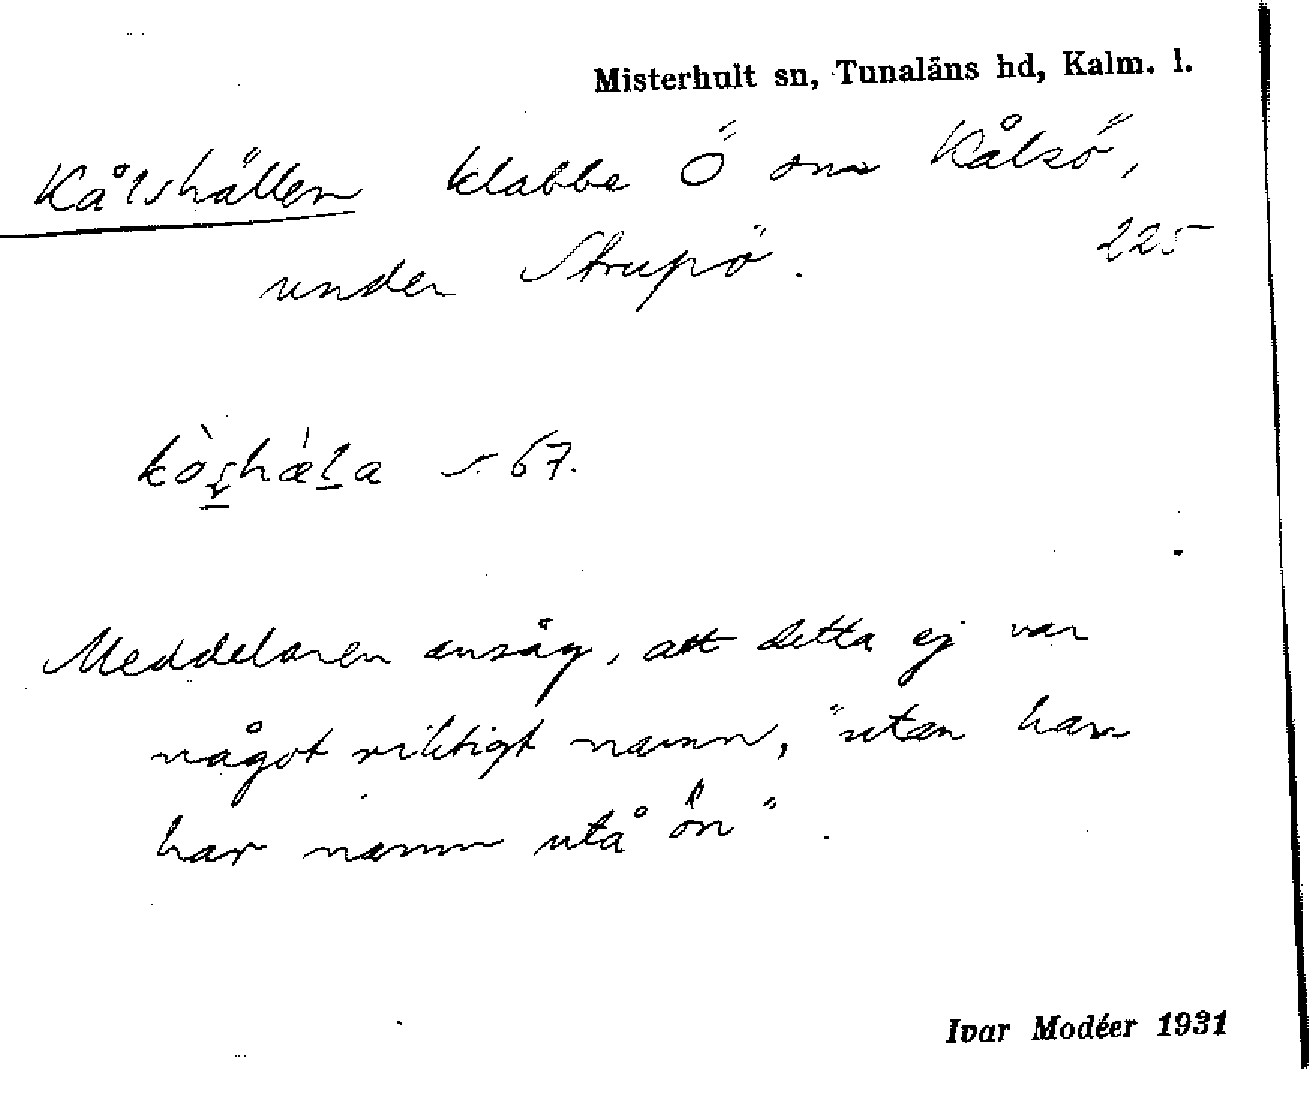 Misterhult sn, Tunaläns hd, Kalm. l.
Kålshällen klabbe Ö om Kålsö,
under Strupö. 225
s. 67.
Meddelaren ansåg, att detta ej var
något riktigt namn, "utan han
har namn utå ön".
Ivar Modéer 1931